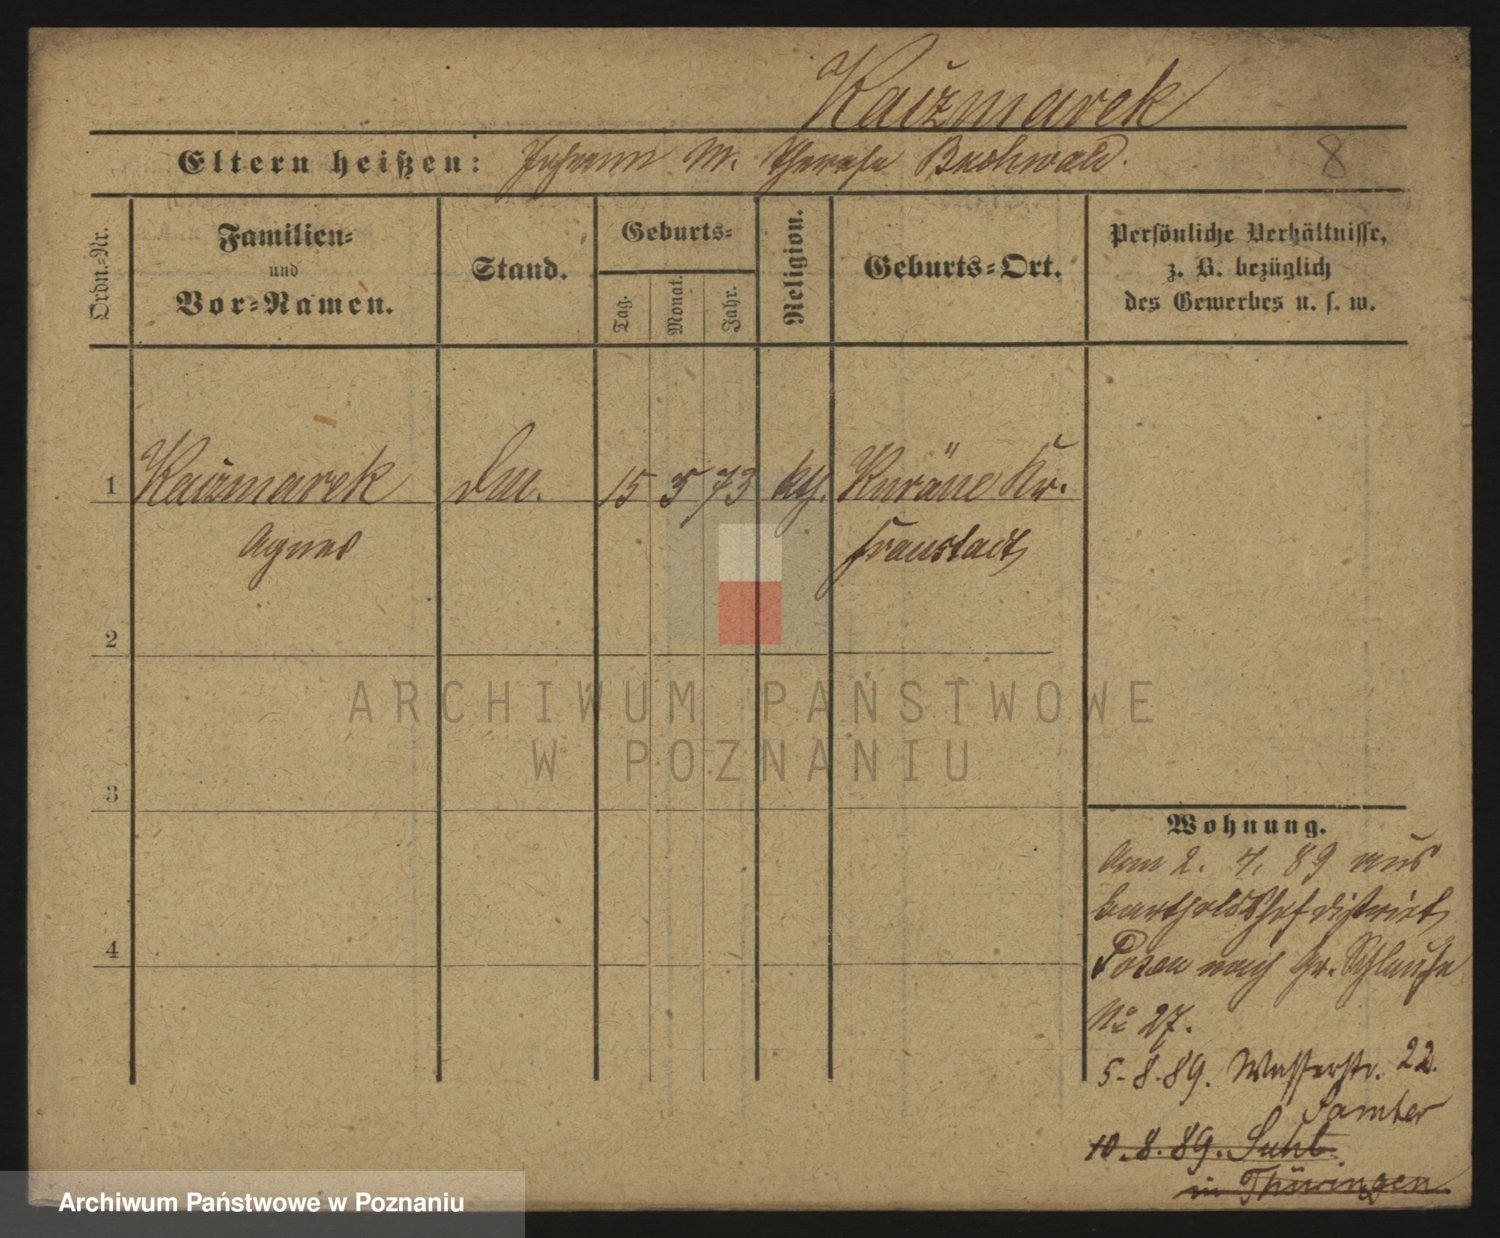 Kaczmarek
Eltern heißen: Johann u. Therese Buchwald. 8
Ordn.-Nr.
Familien-
und
Vor-Namen.
Stand.
Geburts-
Tag.
Monat.
Jahr.
Religion.
Geburts-Ort.
Persönliche Verhältnisse,
z. B. bezüglich
des Gewerbes u. s. w.
1 Kaczmarek 15 5 73 kth. Kr.
Agnes Fraustadt
2
3
4
Wohnung.
Am 2. 7. 89 aus
Bartholdshof District
Posen nach Gr.
No 27.
5.8.89. Wasserstr. 22.
Samter
10.8.89. Suhl
in Thüringen
ARCHIWUM PAŃSTWOWE
W POZNANIU
Archiwum Państwowe w Poznaniu